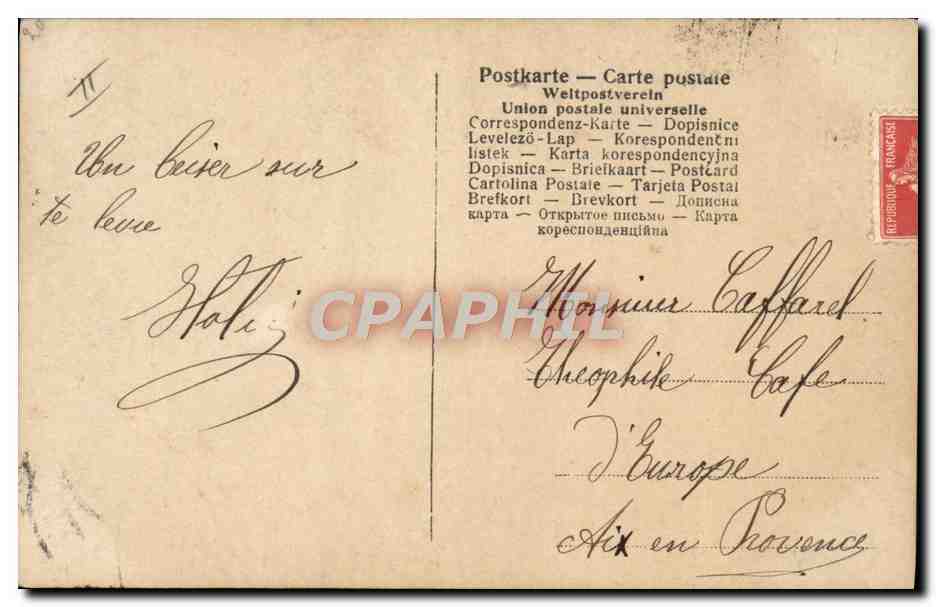 II
Un baiser sur
te levre
Postkarte — Carte postale
Weltpostverein
Union postale universelle
Correspondenz-Karte — Dopisnice
Levelező-Lap — Korespondenční
lístek — Karta korespondencyjna
Dopisnica — Briefkaart — Postcard
Cartolina Postale — Tarjeta Postal
Brefkort — Brevkort — Дописна
карта — Открытое письмо — Карта
кореспонденційна
REPUBLIQUE FRANÇAISE
Monsieur Caffarel
Theophile Cafe
d'Europe
Aix en Provence
CPAPHIL